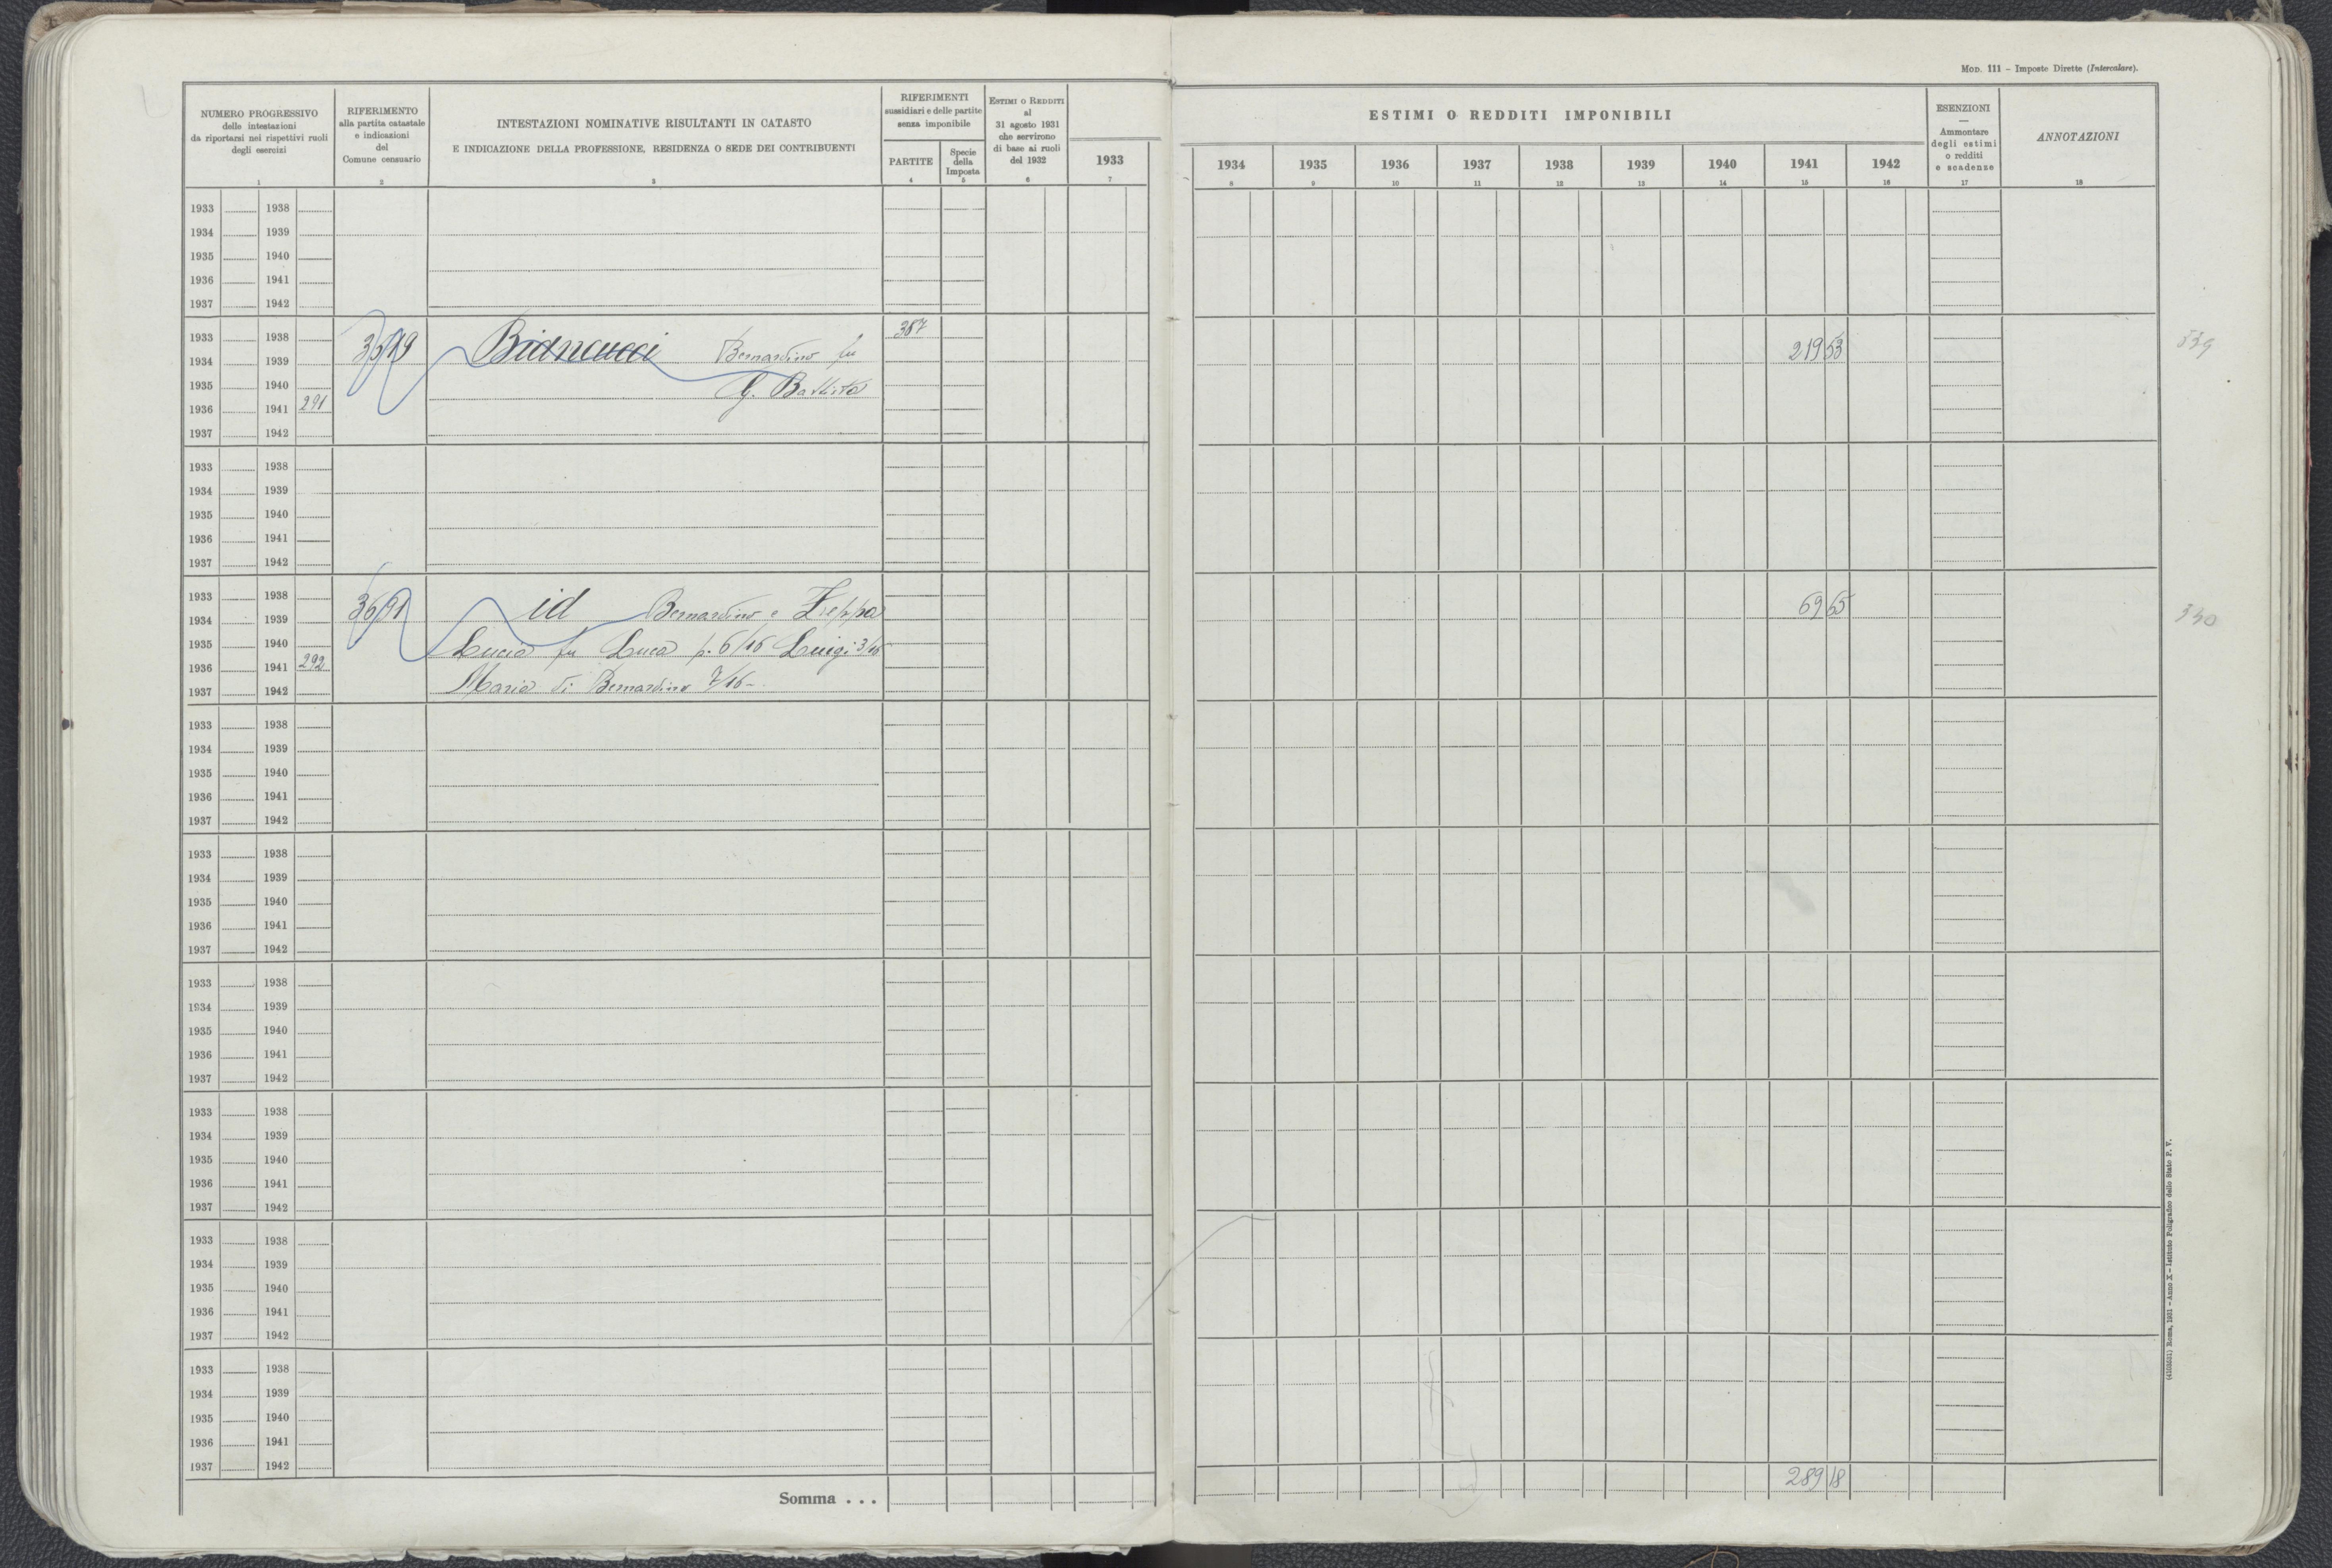 Mod. 111 – Imposte Dirette (Intercalare).
NUMERO PROGRESSIVO
delle intestazioni
da riportarsi nei rispettivi ruoli
degli esercizi
1
RIFERIMENTO
alla partita catastale
e indicazioni
del
Comune censuario
2
INTESTAZIONI NOMINATIVE RISULTANTI IN CATASTO
E INDICAZIONE DELLA PROFESSIONE, RESIDENZA O SEDE DEI CONTRIBUENTI
3
RIFERIMENTI
sussidiari e delle partite
senza imponibile
PARTITE
4
Specie
della
Imposta
5
Estimi o Redditi
al
31 agosto 1931
che servirono
di base ai ruoli
del 1932
6
ESTIMI O REDDITI IMPONIBILI
1933 1934 1935 1936 1937 1938 1939 1940 1941 1942
7 8 9 10 11 12 13 14 15 16
ESENZIONI
—
Ammontare
degli estimi
o redditi
e scadenze
17
ANNOTAZIONI
18
1933 1938
1934 1939
1935 1940
1936 1941
1937 1942
1933 1938 367
1934 1939 Biancucci Bernardino fu 219 53
1935 1940 G. Battista
1936 1941 291
1937 1942
1933 1938
1934 1939
1935 1940
1936 1941
1937 1942
1933 1938
1934 1939 3691 id Bernardino e Zeppa 69 65 330
1935 1940 Lucia fu Luca p. 6/16 Luigi 3/16
1936 1941 292
1937 1942 Maria di Bernardino 7/16 –
1933 1938
1934 1939
1935 1940
1936 1941
1937 1942
1933 1938
1934 1939
1935 1940
1936 1941
1937 1942
1933 1938
1934 1939
1935 1940
1936 1941
1937 1942
1933 1938
1934 1939
1935 1940
1936 1941
1937 1942
1933 1938
1934 1939
1935 1940
1936 1941
1937 1942
1933 1938
1934 1939
1935 1940
1936 1941
1937 1942
Somma . . . 289 18
(4103631) Roma, 1931 – Anno X – Istituto Poligrafico dello Stato P. V.